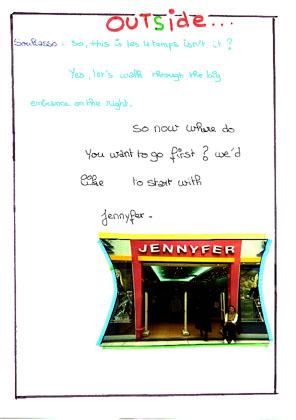 OUTSide...
Soukasso : So, this is les 4 temps isn't it ?
Yes, let's walk through the big
entrance on the right.
So now where do
You want to go first ? we'd
like to start with
Jennyfer.
JENNYFER